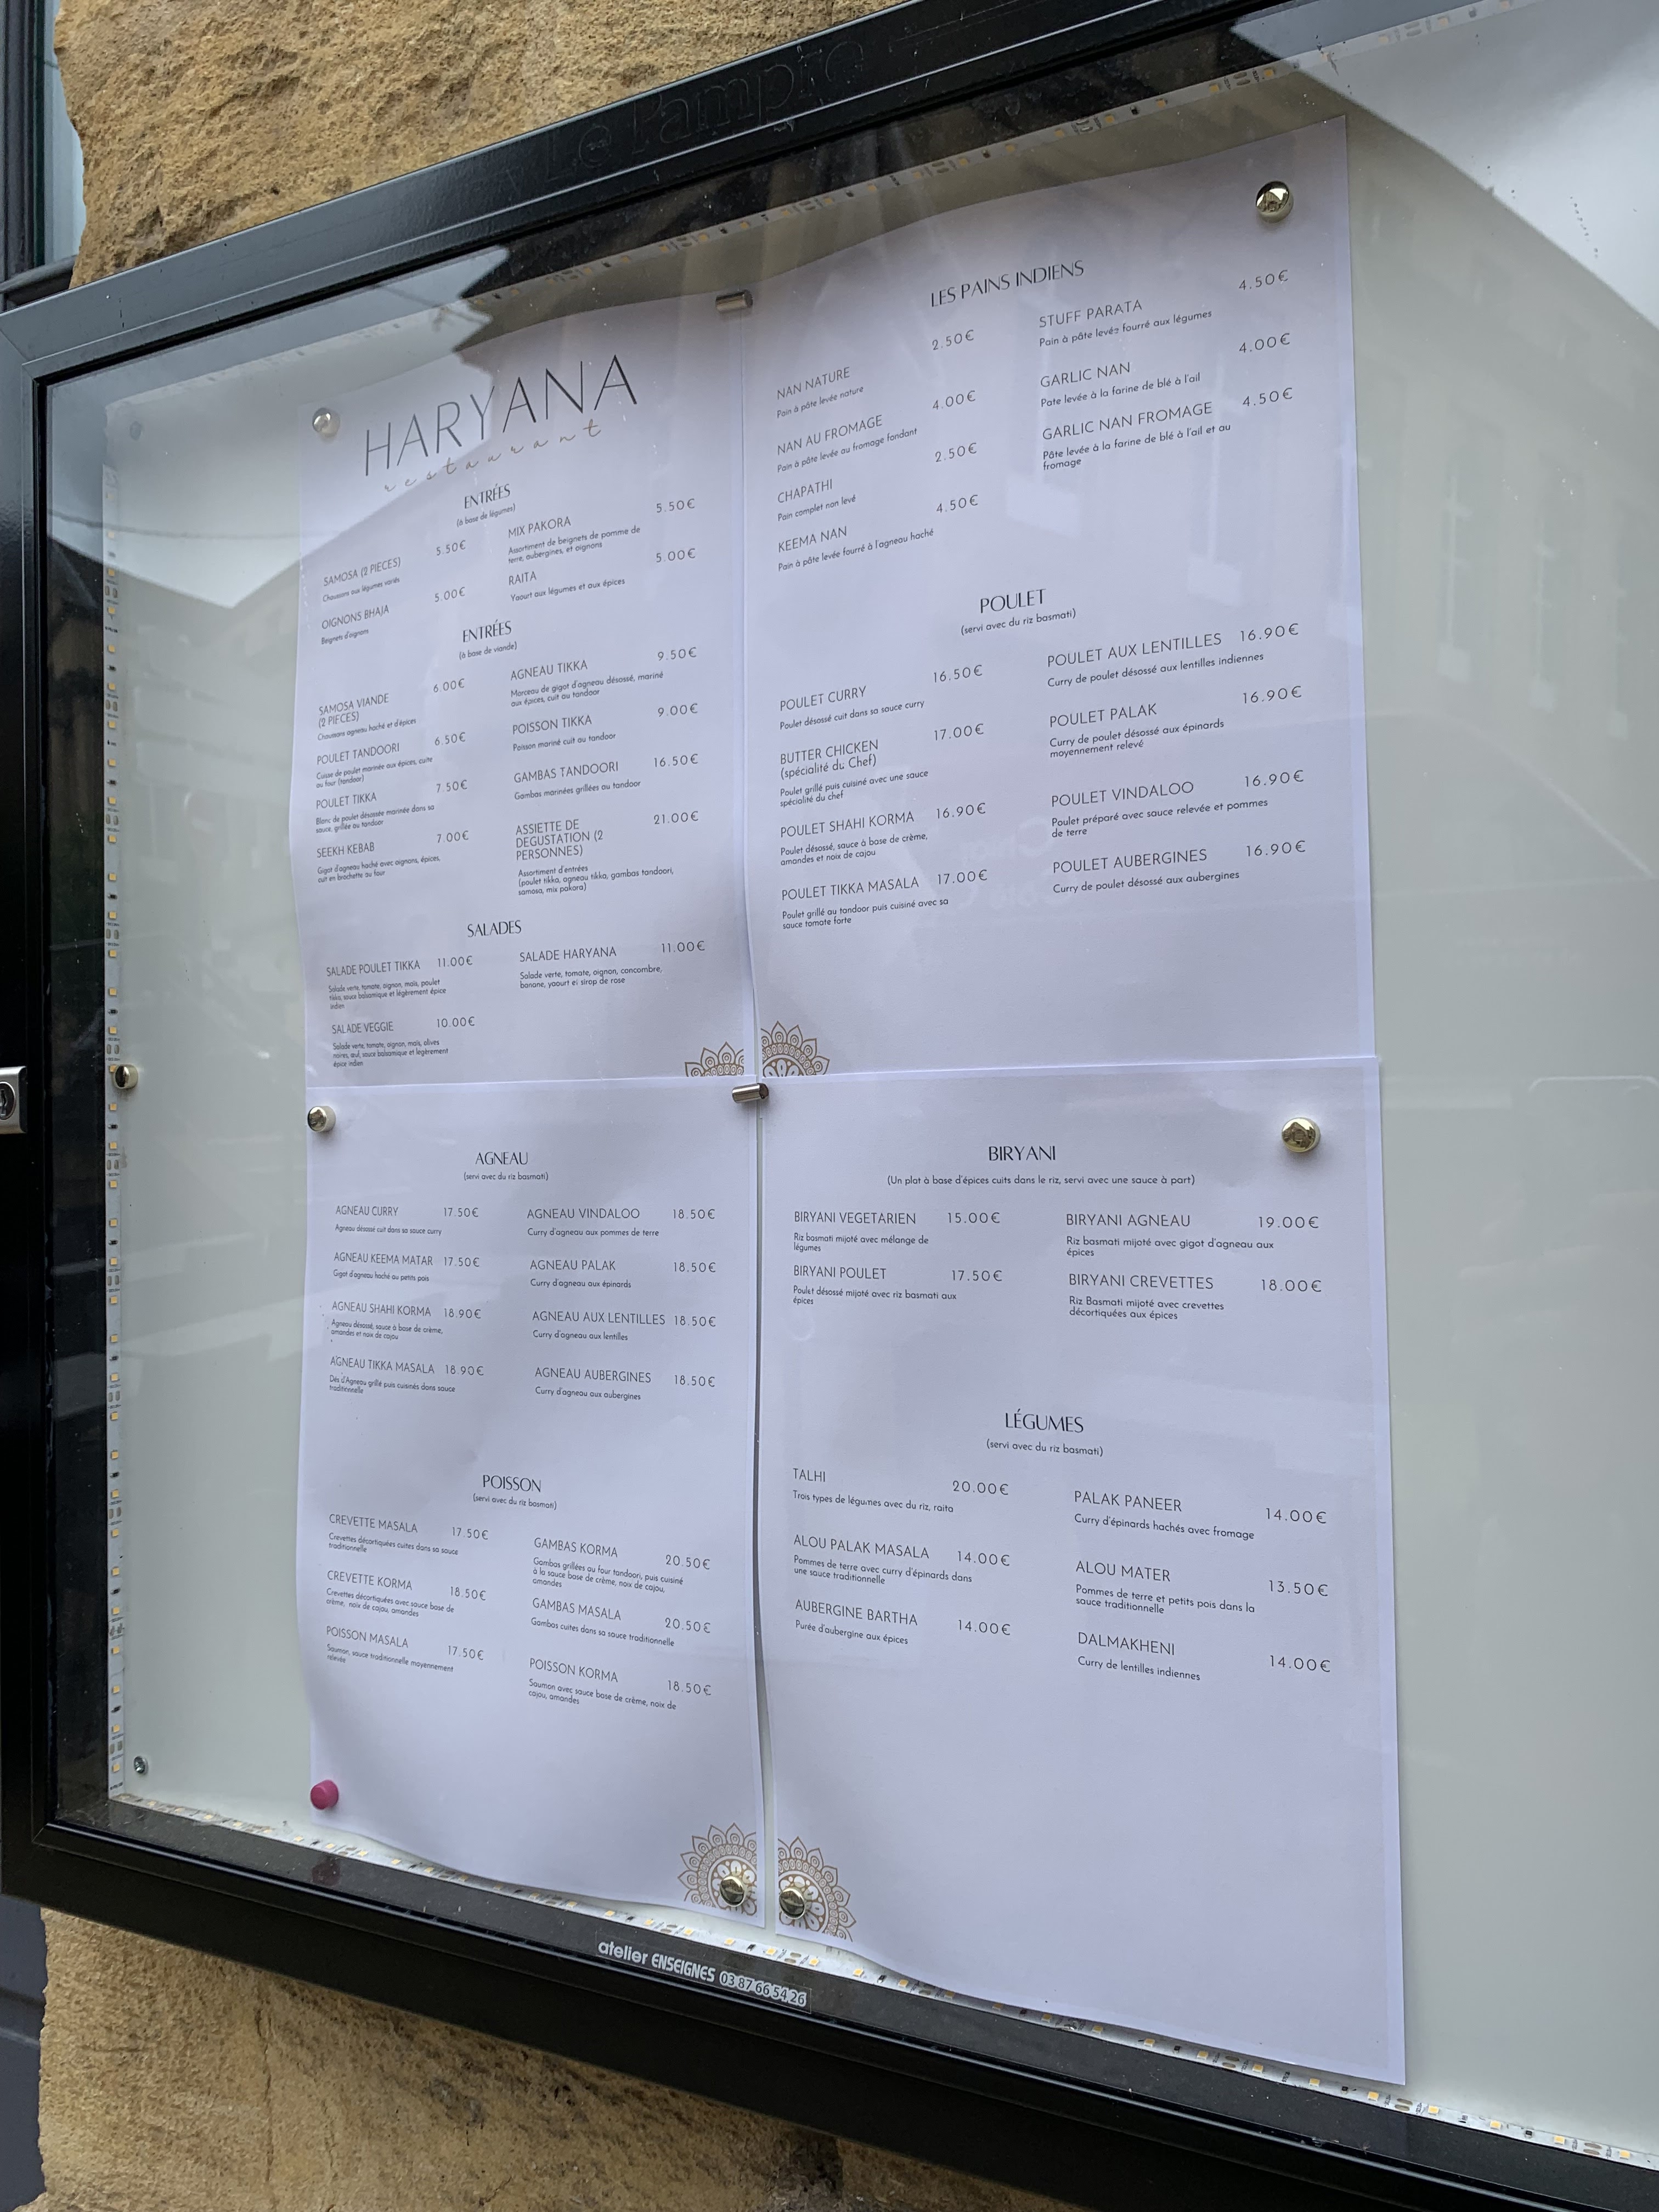 Le Pampre
HARYANA
restaurant
ENTRÉES
(à base de légumes)
SAMOSA (2 PIECES) 5.50€
Chaussons aux légumes variés
OIGNONS BHAJA 5.00€
Beignets d'oignons
MIX PAKORA 5.50€
Assortiment de beignets de pomme de
terre, aubergines, et oignons
RAITA 5.00€
Yaourt aux légumes et aux épices
ENTRÉES
(à base de viande)
SAMOSA VIANDE 6.00€
(2 PIECES)
Chaussons agneau haché et d'épices
POULET TANDOORI 6.50€
Cuisse de poulet marinée aux épices, cuite
au four (tandoor)
POULET TIKKA 7.50€
Blanc de poulet désossée marinée dans sa
sauce, grillée au tandoor
SEEKH KEBAB 7.00€
Gigot d'agneau haché avec oignons, épices,
cuit en brochette au four
AGNEAU TIKKA 9.50€
Morceau de gigot d'agneau désossé, mariné
aux épices, cuit au tandoor
POISSON TIKKA 9.00€
Poisson mariné cuit au tandoor
GAMBAS TANDOORI 16.50€
Gambas marinées grillées au tandoor
ASSIETTE DE 21.00€
DEGUSTATION (2
PERSONNES)
Assortiment d'entrées
(poulet tikka, agneau tikka, gambas tandoori,
samosa, mix pakora)
SALADES
SALADE POULET TIKKA 11.00€
Salade verte, tomate, oignon, maïs, poulet
tikka, sauce balsamique et légèrement épice
indien
SALADE VEGGIE 10.00€
Salade verte, tomate, oignon, maïs, olives
noires, œuf, sauce balsamique et légèrement
épice indien
SALADE HARYANA 11.00€
Salade verte, tomate, oignon, concombre,
banane, yaourt et sirop de rose
LES PAINS INDIENS
NAN NATURE 2.50€
Pain à pâte levée nature
NAN AU FROMAGE 4.00€
Pain à pâte levée au fromage fondant
CHAPATHI 2.50€
Pain complet non levé
KEEMA NAN 4.50€
Pain à pâte levée fourré à l'agneau haché
STUFF PARATA 4.50€
Pain à pâte levée fourré aux légumes
GARLIC NAN 4.00€
Pate levée à la farine de blé à l'ail
GARLIC NAN FROMAGE 4.50€
Pâte levée à la farine de blé à l'ail et au
fromage
POULET
(servi avec du riz basmati)
POULET CURRY 16.50€
Poulet désossé cuit dans sa sauce curry
BUTTER CHICKEN 17.00€
(spécialité du Chef)
Poulet grillé puis cuisiné avec une sauce
spécialité du chef
POULET SHAHI KORMA 16.90€
Poulet désossé, sauce à base de crème,
amandes et noix de cajou
POULET TIKKA MASALA 17.00€
Poulet grillé au tandoor puis cuisiné avec sa
sauce tomate forte
POULET AUX LENTILLES 16.90€
Curry de poulet désossé aux lentilles indiennes
POULET PALAK 16.90€
Curry de poulet désossé aux épinards
moyennement relevé
POULET VINDALOO 16.90€
Poulet préparé avec sauce relevée et pommes
de terre
POULET AUBERGINES 16.90€
Curry de poulet désossé aux aubergines
AGNEAU
(servi avec du riz basmati)
AGNEAU CURRY 17.50€
Agneau désossé cuit dans sa sauce curry
AGNEAU KEEMA MATAR 17.50€
Gigot d'agneau haché au petits pois
AGNEAU SHAHI KORMA 18.90€
Agneau désossé, sauce à base de crème,
amandes et noix de cajou
AGNEAU TIKKA MASALA 18.90€
Dés d'Agneau grillé puis cuisinés dans sauce
traditionnelle
AGNEAU VINDALOO 18.50€
Curry d'agneau aux pommes de terre
AGNEAU PALAK 18.50€
Curry d'agneau aux épinards
AGNEAU AUX LENTILLES 18.50€
Curry d'agneau aux lentilles
AGNEAU AUBERGINES 18.50€
Curry d'agneau aux aubergines
POISSON
(servi avec du riz basmati)
CREVETTE MASALA 17.50€
Crevettes décortiquées cuites dans sa sauce
traditionnelle
CREVETTE KORMA 18.50€
Crevettes décortiquées avec sauce base de
crème, noix de cajou, amandes
POISSON MASALA 17.50€
Saumon, sauce traditionnelle moyennement
relevée
GAMBAS KORMA 20.50€
Gambas grillées au four tandoori, puis cuisiné
à la sauce base de crème, noix de cajou,
amandes
GAMBAS MASALA 20.50€
Gambas cuites dans sa sauce traditionnelle
POISSON KORMA 18.50€
Saumon avec sauce base de crème, noix de
cajou, amandes
BIRYANI
(Un plat à base d'épices cuits dans le riz, servi avec une sauce à part)
BIRYANI VEGETARIEN 15.00€
Riz basmati mijoté avec mélange de
légumes
BIRYANI POULET 17.50€
Poulet désossé mijoté avec riz basmati aux
épices
BIRYANI AGNEAU 19.00€
Riz basmati mijoté avec gigot d'agneau aux
épices
BIRYANI CREVETTES 18.00€
Riz Basmati mijoté avec crevettes
décortiquées aux épices
LÉGUMES
(servi avec du riz basmati)
TALHI 20.00€
Trois types de légumes avec du riz, raita
ALOU PALAK MASALA 14.00€
Pommes de terre avec curry d'épinards dans
une sauce traditionnelle
AUBERGINE BARTHA 14.00€
Purée d'aubergine aux épices
PALAK PANEER 14.00€
Curry d'épinards hachés avec fromage
ALOU MATER 13.50€
Pommes de terre et petits pois dans la
sauce traditionnelle
DALMAKHENI 14.00€
Curry de lentilles indiennes
atelier ENSEIGNES 03 87 66 54 26